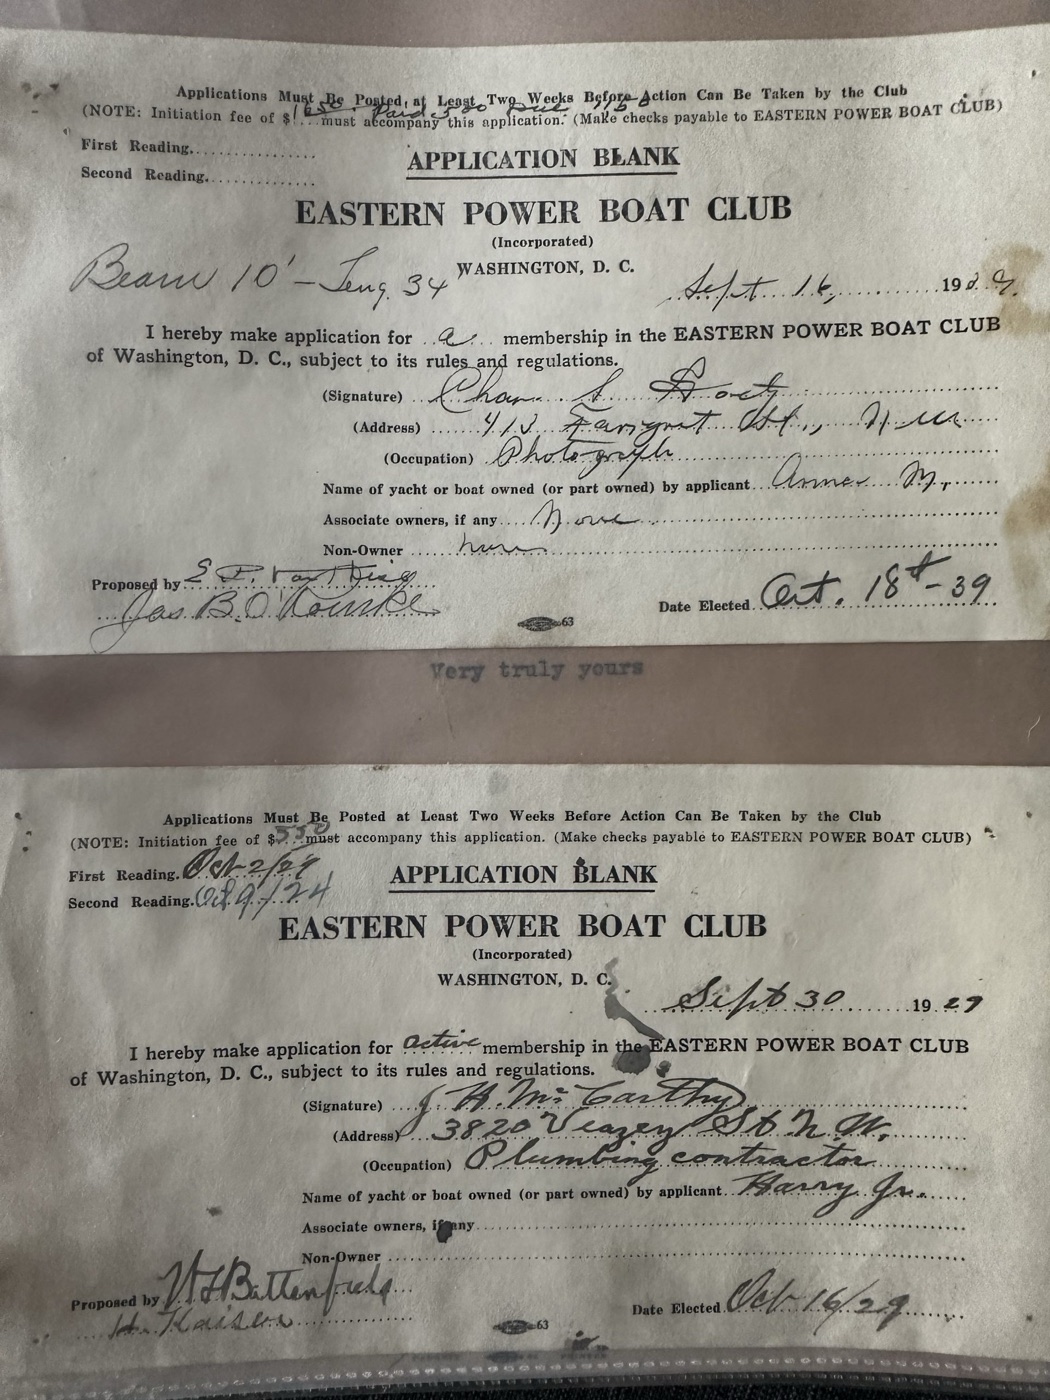 Applications Must Be Posted at Least Two Weeks Before Action Can Be Taken by the Club
(NOTE: Initiation fee of $ must accompany this application. (Make checks payable to EASTERN POWER BOAT CLUB)
First Reading
Second Reading
APPLICATION BLANK
EASTERN POWER BOAT CLUB
(Incorporated)
WASHINGTON, D. C.
Beam 10' - Leng. 34
Sept 16, 1939.
I hereby make application for a membership in the EASTERN POWER BOAT CLUB
of Washington, D. C., subject to its rules and regulations.
(Signature) Chas. S.
(Address) 413 Farragut St., N.W.
(Occupation) Photograph
Name of yacht or boat owned (or part owned) by applicant Anna M.
Associate owners, if any None
Non-Owner none
Proposed by E. P.
Jas B. O'Rourke
Date Elected Oct. 18th - 39
63
Very truly yours
Applications Must Be Posted at Least Two Weeks Before Action Can Be Taken by the Club
(NOTE: Initiation fee of $ 550 must accompany this application. (Make checks payable to EASTERN POWER BOAT CLUB)
First Reading. Oct 2/29
Second Reading. Oct 9/24
APPLICATION BLANK
EASTERN POWER BOAT CLUB
(Incorporated)
WASHINGTON, D. C.
Sept 30 1929
I hereby make application for active membership in the EASTERN POWER BOAT CLUB
of Washington, D. C., subject to its rules and regulations.
(Signature) J H McCarthy
(Address) 3820 Veazey St N. W.
(Occupation) Plumbing contractor
Name of yacht or boat owned (or part owned) by applicant Harry Jr.
Associate owners, if any
Non-Owner
Proposed by Battenfield
H. Kaiser
Date Elected Oct 16/29
63